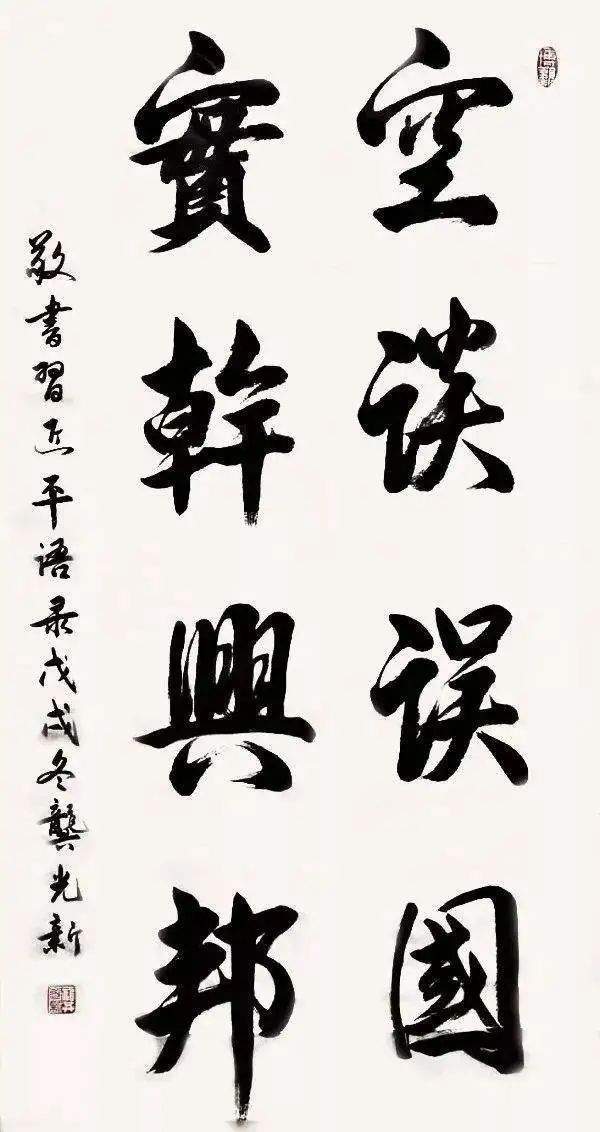 空谈误國
實幹興邦
敬書習近平语录戊戌冬龔光新